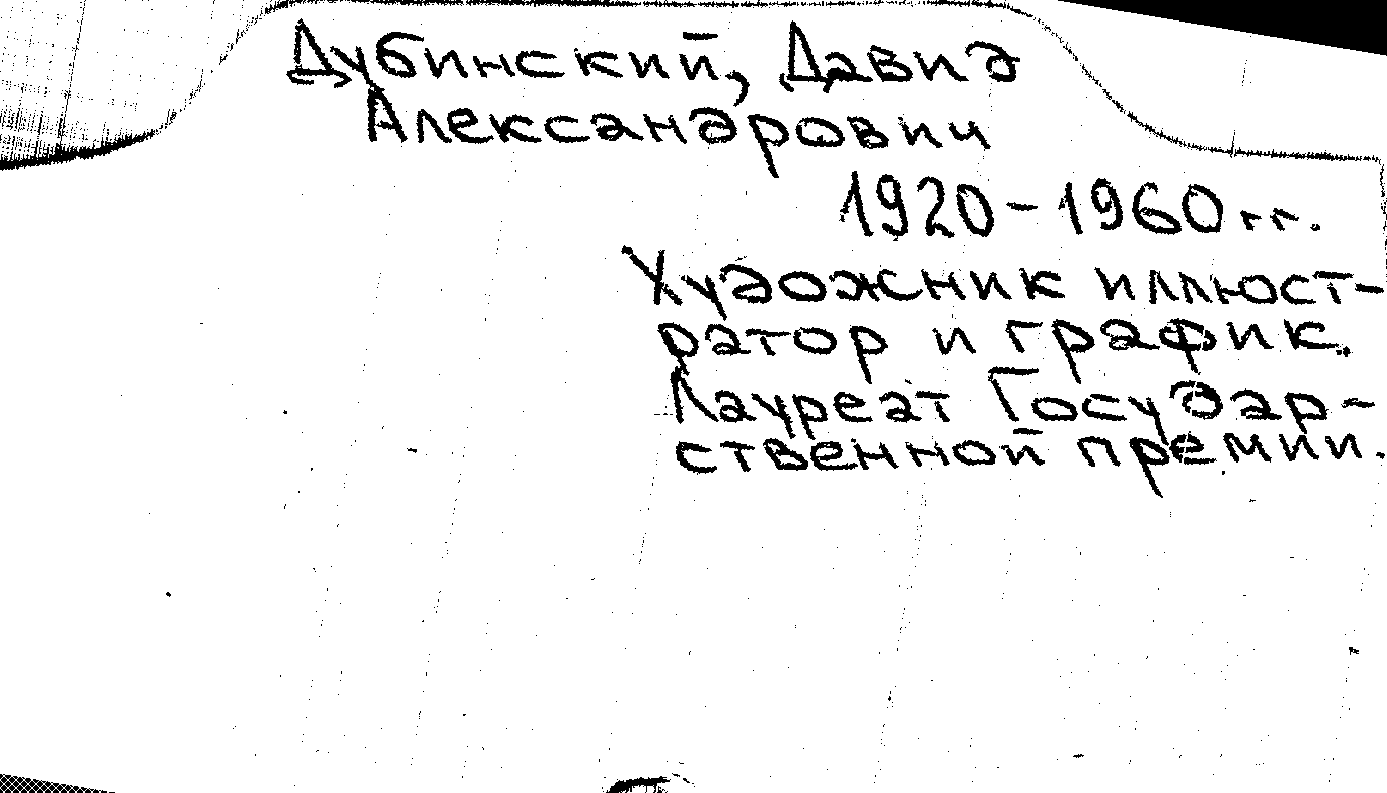 Дубинский, Давид
Александрович
1920-1960 гг.
Художник иллюст-
ратор и график.
Лауреат Государ-
ственной премии.